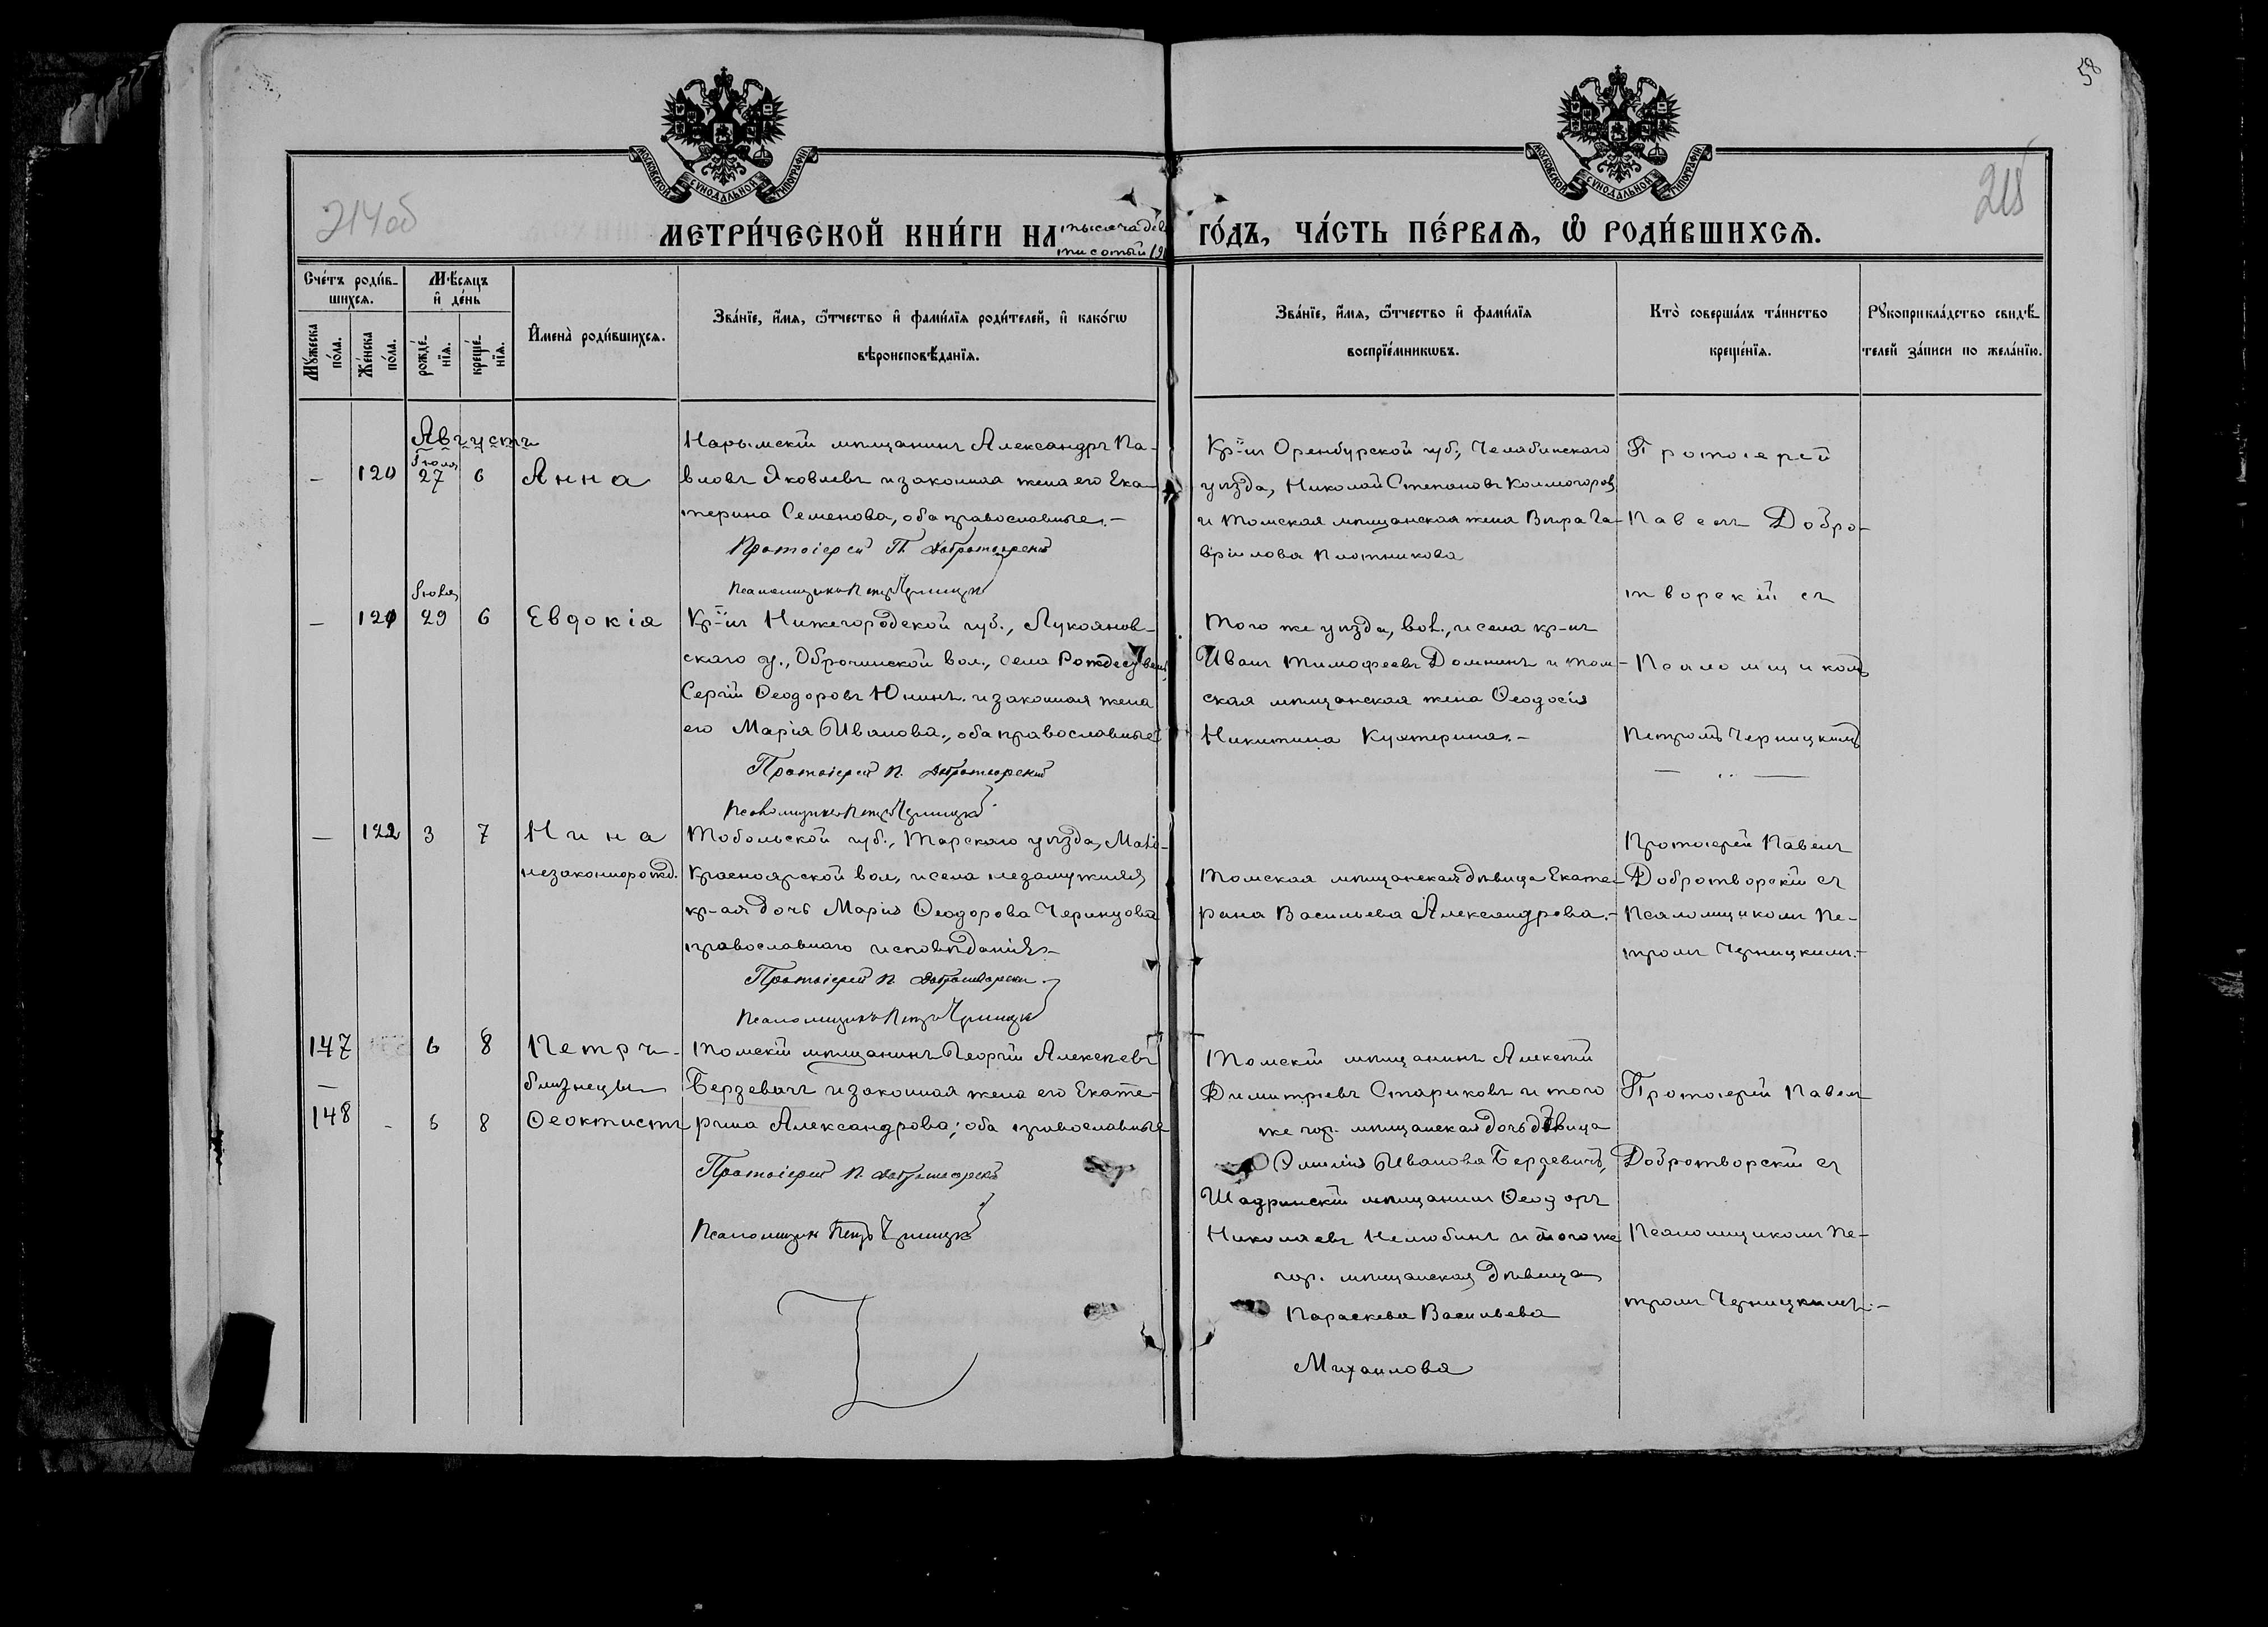 58
МОСКОВСКОЙ СѴНОДАЛЬНОЙ ТИПОГРАФІИ
МОСКОВСКОЙ СѴНОДАЛЬНОЙ ТИПОГРАФІИ
214об
215
МЕТРИ́ЧЕСКОЙ КНИ́ГИ НА тысяча дев
тисотый 19
ГО́ДЪ, ЧА́СТЬ ПЕ́РВАѦ, Ѡ҆ РОДИ́ВШИХСѦ.
Сче́тъ роди́в-
шихсѧ.
Мѣ́сѧцъ
и҆ де́нь
Мꙋ́жеска
по́ла.
Же́нска
по́ла.
рожде́-
нїѧ.
креще́-
нїѧ.
И҆мена̀ роди́вшихсѧ.
Зва́нїе, и҆́мѧ, ѻ҆́тчество и҆ фами́лїѧ роди́телей, и҆ како́гѡ
вѣроисповѣ́данїѧ.
Зва́нїе, и҆́мѧ, ѻ҆́тчество и҆ фами́лїѧ
воспрїе́мникѡвъ.
Кто̀ соверша́лъ та́инство
креще́нїѧ.
Рꙋкоприкла́дство свидѣ́-
телей за́писи по жела́нїю.
Августъ
Іюля
– 120 27 6 Анна
Нарымскій мѣщанинъ Александръ Па-
вловъ Яковлевъ и законная жена его Ека-
терина Семенова, оба православные.–
Протоіерей П. Добротворскій
Псаломщикъ Петръ Черницкій
Кр-нъ Оренбурской губ., Челябинскаго
уѣзда, Николай Степановъ Колмогоровъ
и Томская мѣщанская жена Вѣра Га-
вріилова Плотникова
Протоіерей
Павелъ Добро-
творскій съ
Псаломщикомъ
Петромъ Черницкимъ
Іюля
– 121 29 6 Евдокія
Кр-нъ Нижегородской губ., Лукоянов-
скаго у., Оброчинской вол., села Рождествена
Сергій Ѳеодоровъ Юнинъ и законная жена
его Марія Иванова, оба православные
Протоіерей П. Добротворскій
Псаломщикъ Петръ Черницкій
Того же уѣзда, вол., и села кр-нъ
Иванъ Тимоѳеевъ Домнинъ и том-
ская мѣщанская жена Ѳеодосія
Никитина Кухтерина.–
– 122 3 7 Нина
незаконнорожд.
Тобольской губ., Тарскаго уѣзда, Мало-
Красноярской вол., и села незамужняя
кр-ая дочь Марія Ѳеодорова Черинцова
православнаго исповѣданія–
Протоіерей П. Добротворскій
Псаломщикъ Петръ Черницкій
Томская мѣщанская дѣвица Екате-
рина Васильева Александрова.–
Протоіерей Павелъ
Добротворскій съ
Псаломщикомъ Пе-
тромъ Черницкимъ.–
147 6 8 Петръ-
близнецы
148 - 6 8 Ѳеоктистъ
Томскій мѣщанинъ Георгій Алексѣевъ
Берзевичъ и законная жена его Екате-
рина Александрова; оба православные
Протоіерей П. Добротворскій
Псаломщикъ Петръ Черницкій
Томскій мѣщанинъ Алексѣй
Димитріевъ Стариковъ и того
же гор. мѣщанская дочь дѣвица
Эмилія Иванова Берзевичъ,
Шадринскій мѣщанинъ Ѳеодоръ
Николаевъ Нелюбинъ и того же
гор. мѣщанская дѣвица
Параскева Васильева
Михаилова
Протоіерей Павелъ
Добротворскій съ
Псаломщикомъ Пе-
тромъ Черницкимъ.–